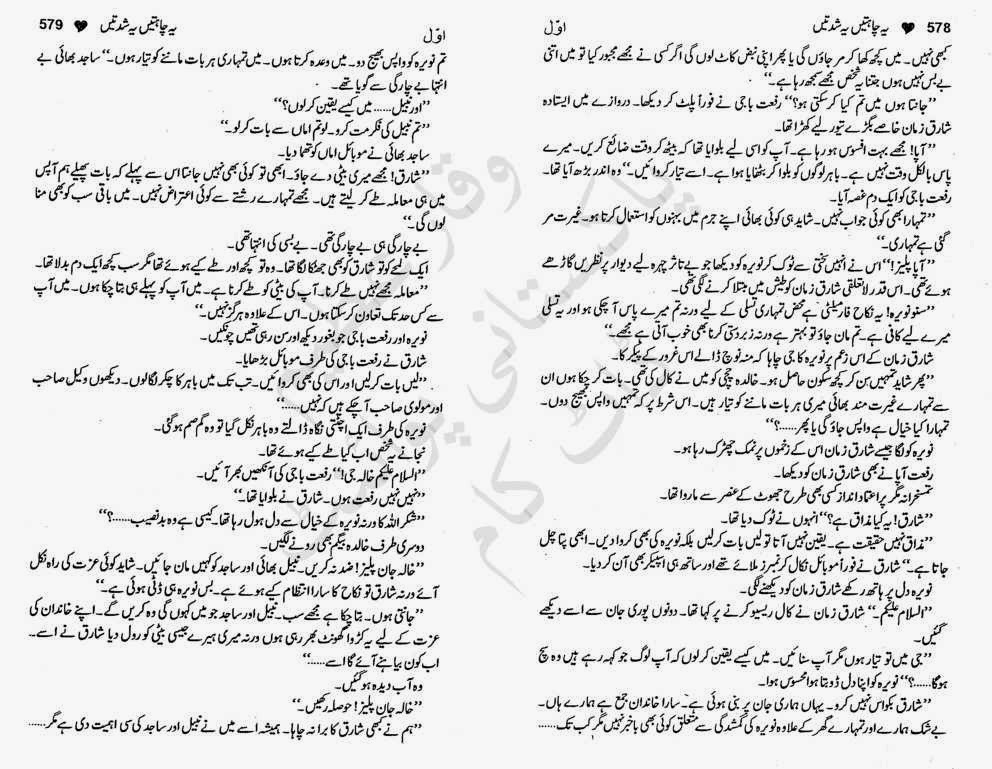 578 یہ چاہتیں یہ شدتیں اوّل
کبھی نہیں۔ میں کچھ کھا کر مر جاؤں گی یا پھر اپنی نبض کاٹ لوں گی اگر کسی نے مجھے مجبور کیا تو میں اتنی
بے بس نہیں ہوں جتنا یہ شخص مجھے سمجھ رہا ہے۔‘‘
’’جانتا ہوں میں تم کیا کر سکتی ہو؟‘‘ رفعت باجی نے فوراً پلٹ کر دیکھا۔ دروازے میں ایستادہ
شارق زمان خاصے بگڑے تیور لیے کھڑا تھا۔
’’آپا! مجھے بہت افسوس ہو رہا ہے۔ آپ کو اسی لیے بلوایا تھا کہ بیٹھ کر وقت ضائع کریں۔ میرے
پاس بالکل وقت نہیں ہے۔ باہر لوگوں کو بلوا کر بٹھایا ہوا ہے۔ اسے تیار کروائیں۔‘‘ وہ اندر بڑھ آیا تھا۔
رفعت باجی کو ایک دم غصہ آیا۔
’’تمہارا بھی کوئی جواب نہیں۔ شاید ہی کوئی بھائی اپنے جرم میں بہنوں کو استعمال کرتا ہو۔ غیرت مر
گئی ہے تمہاری۔‘‘
’’آپا پلیز!‘‘ اس نے انہیں سختی سے ٹوک کر نویرہ کو دیکھا جو بے تاثر چہرہ لیے دیوار پر نظریں گاڑھے
ہوئے تھی۔ اس قدر لاتعلقی شارق زمان کو طیش میں مبتلا کرنے لگی تھی۔
’’سنو نویرہ! یہ نکاح فارمیلٹی ہے محض تمہاری تسلی کے لیے ورنہ تم میرے پاس آ چکی ہو اور یہ تسلی
میرے لیے کافی ہے۔ تم مان جاؤ تو بہتر ہے ورنہ زبردستی کرنا بھی خوب آتی ہے مجھے۔‘‘
شارق زمان کے اس زعم پر نویرہ کا جی چاہا کہ منہ نوچ ڈالے اس غرور کے پیکر کا۔
’’پھر شاید تمہیں سن کر کچھ سکون حاصل ہو۔ خالدہ چچی کو میں نے کال کی تھی۔ بات کر چکا ہوں ان
سے تمہارے غیرت مند بھائی میری ہر بات ماننے کو تیار ہیں۔ اس شرط پر کہ تمہیں واپس بھیج دوں۔
تمہارا کیا خیال ہے واپس جاؤ گی یا پھر......؟‘‘
نویرہ کو لگا جیسے شارق زمان اس کے زخموں پر نمک چھڑک رہا ہو۔
رفعت آپا نے بھی شارق زمان کو دیکھا۔
تمسخرانہ مگر پراعتماد انداز کسی بھی طرح جھوٹ کے عنصر سے ماورا تھا۔
’’شارق! یہ کیا مذاق ہے؟‘‘ انہوں نے ٹوک دیا تھا۔
’’مذاق نہیں حقیقت ہے۔ یقین نہیں آتا تو لیں بات کر لیں بلکہ نویرہ کی کروا دیں۔ ابھی پتا چل
جاتا ہے۔‘‘ شارق نے فوراً موبائل نکال کر نمبرز ملائے تھے اور ساتھ ہی اسپیکر بھی آن کر دیا۔
نویرہ دل پر ہاتھ رکھے شارق زمان کو دیکھنے لگی۔
’’السلام علیکم۔‘‘ شارق زمان نے کال ریسیو کرنے پر کہا تھا۔ دونوں پوری جان سے اسے دیکھے
گئیں۔
’’جی میں تو تیار ہوں مگر آپ سنائیں۔ میں کیسے یقین کر لوں کہ آپ لوگ جو کہہ رہے ہیں وہ سچ
ہوگا......؟‘‘ نویرہ کو اپنا دل ڈوبتا ہوا محسوس ہوا۔
’’شارق بکواس نہیں کرو۔ یہاں ہماری جان پر بنی ہوئی ہے۔ سارا خاندان جمع ہے ہمارے ہاں۔
بے شک ہمارے اور تمہارے گھر کے علاوہ نویرہ کی گمشدگی سے متعلق کوئی بھی باخبر نہیں مگر کب تک......
579 یہ چاہتیں یہ شدتیں اوّل
تم نویرہ کو واپس بھیج دو۔ میں وعدہ کرتا ہوں۔ میں تمہاری ہر بات ماننے کو تیار ہوں۔‘‘ ساجد بھائی بے
انتہا بے چارگی سے گویا تھے۔
’’اور نبیل...... میں کیسے یقین کر لوں؟‘‘
’’تم نبیل کی فکر مت کرو۔ لو تم اماں سے بات کر لو۔‘‘
ساجد بھائی نے موبائل اماں کو تھما دیا۔
’’شارق! مجھے میری بیٹی دے جاؤ۔ ابھی تو کوئی بھی نہیں جانتا اس سے پہلے کہ بات پھیلے ہم آپس
میں ہی معاملہ طے کر لیتے ہیں۔ مجھے تمہارے رشتے سے کوئی اعتراض نہیں۔ میں باقی سب کو بھی منا
لوں گی۔‘‘
بے چارگی ہی بے چارگی تھی۔ بے بسی کی انتہا تھی۔
ایک لمحے کو تو شارق کو بھی جھٹکا لگا تھا۔ وہ تو کچھ اور طے کیے ہوئے تھا مگر سب کچھ ایک دم بدلا تھا۔
’’معاملہ مجھے نہیں طے کرنا۔ آپ کی بیٹی کو طے کرنا ہے۔ میں آپ کو پہلے ہی بتا چکا ہوں۔ میں آپ
سے کس حد تک تعاون کر سکتا ہوں۔ اس کے علاوہ ہرگز نہیں۔‘‘
نویرہ اور رفعت باجی جو بغور دیکھ اور سن رہی تھیں چونکیں۔
شارق نے رفعت باجی کی طرف موبائل بڑھایا۔
’’لیں بات کر لیں اور اس کی بھی کروائیں۔ تب تک میں باہر کا چکر لگا لوں۔ دیکھوں وکیل صاحب
اور مولوی صاحب آ چکے ہیں کہ نہیں......‘‘
نویرہ کی طرف ایک اچٹتی نگاہ ڈالتے وہ باہر نکل گیا تو وہ گم صم ہو گئی۔
نجانے یہ شخص اب کیا طے کیے ہوئے تھا۔
’’السلام علیکم خالہ جی!‘‘ رفعت باجی کی آنکھیں بھر آئیں۔
’’نہیں نہیں رفعت ہوں۔ شارق نے بلوایا تھا۔‘‘
’’شکر اللہ کا ورنہ نویرہ کے خیال سے دل ہول رہا تھا۔ کیسی ہے وہ بدنصیب......؟‘‘
دوسری طرف خالدہ بیگم بھی رونے لگیں۔
’’خالہ جان پلیز! ضد نہ کریں۔ نبیل بھائی اور ساجد کو کہیں مان جائیں۔ شاید کوئی عزت کی راہ نکل
آئے ورنہ شارق تو نکاح کا سارا انتظام کیے ہوئے ہے۔ بس نویرہ ہی ڈٹی ہوئی ہے۔‘‘
’’جانتی ہوں۔ بتا چکا ہے مجھے سب۔ نبیل اور ساجد جو میں کہوں گی وہ کریں گے۔ اپنے خاندان کی
عزت کے لیے یہ کڑوا گھونٹ بھر رہی ہوں ورنہ میری ہیرے جیسی بیٹی کو رول دیا شارق نے اسے۔
اب کون بیاہنے آئے گا اسے......‘‘
وہ آب دیدہ ہو گئیں۔
’’خالہ جان پلیز! حوصلہ رکھیں۔‘‘
’’ہم نے کبھی شارق کا برا نہ چاہا۔ ہمیشہ اسے میں نے نبیل اور ساجد کی سی اہمیت دی ہے مگر......